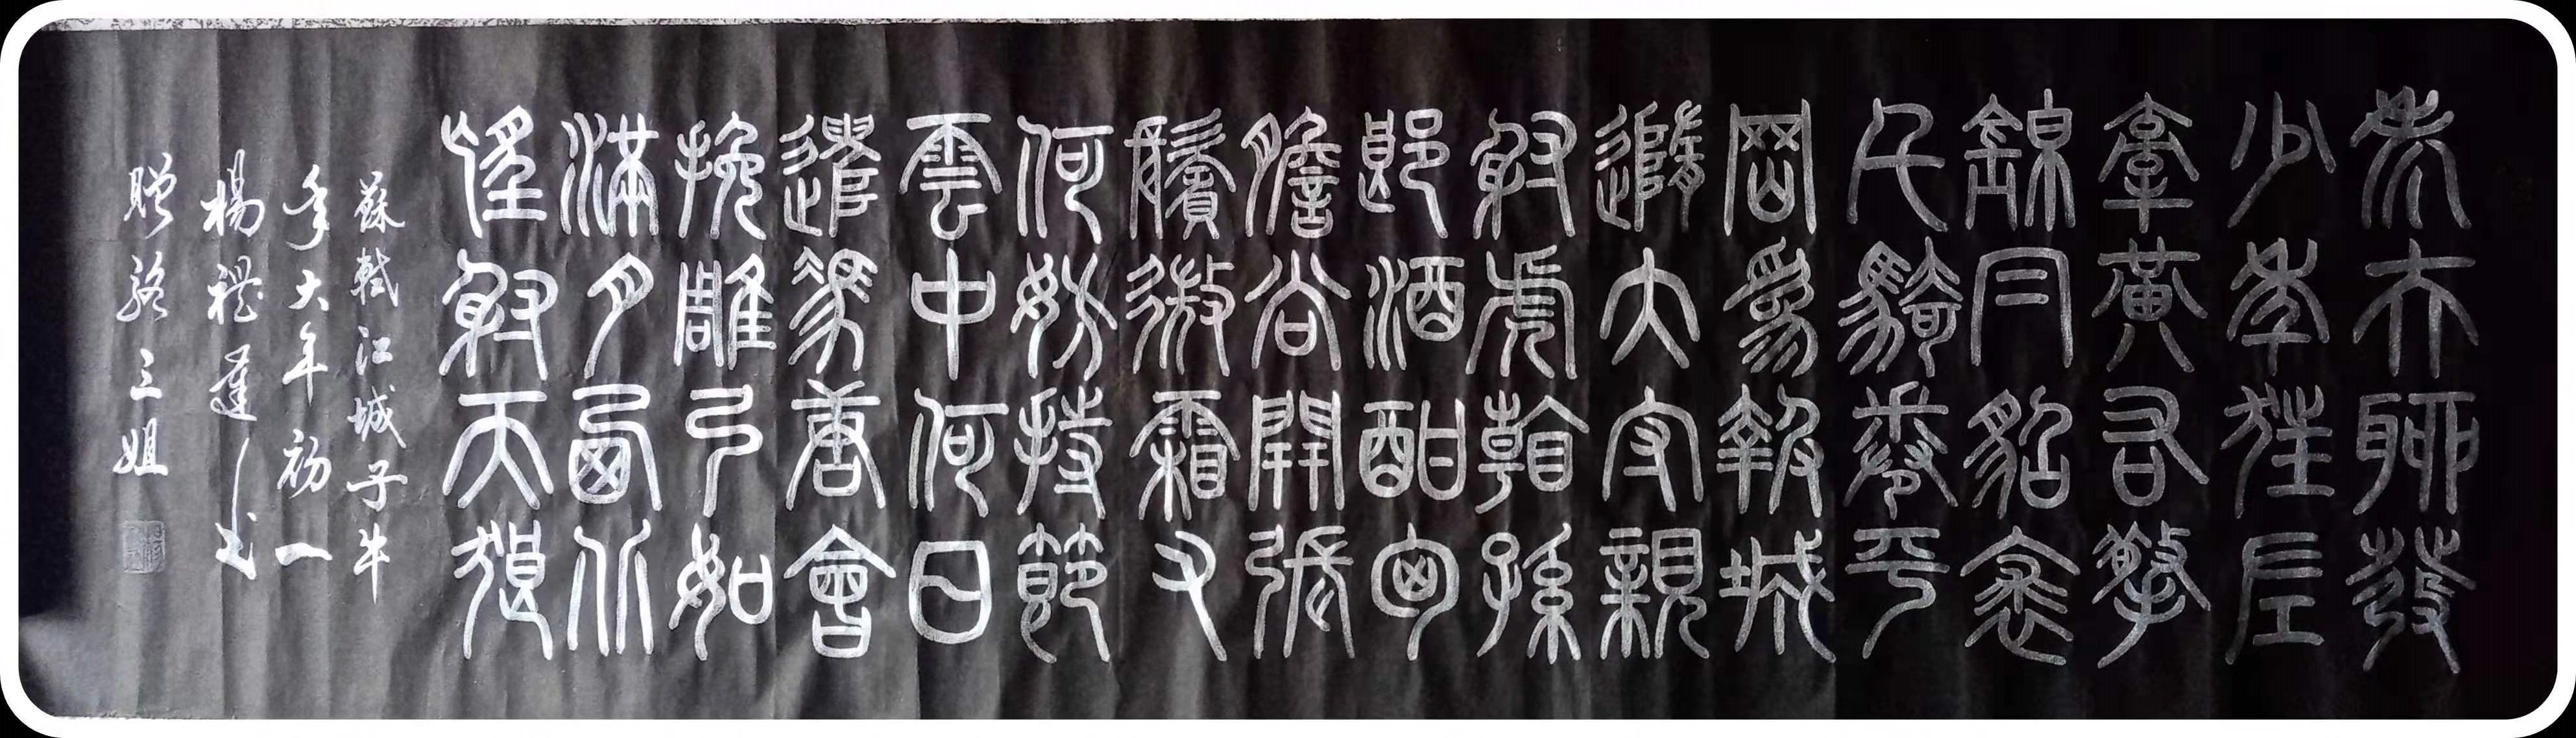 老夫聊發
少年狂左
牽黃右擎
錦冃貂裘
千騎卷平
岡為報城
隨大守親
射虎看孫
郎酒酣胸
膽尚開張
鬢微霜又
何妨持節
雲中何日
遣馮唐會
挽雕弓如
滿月西北
望射天狼
蘇軾江城子牛
年大年初一
楊禮书
贈路三姐